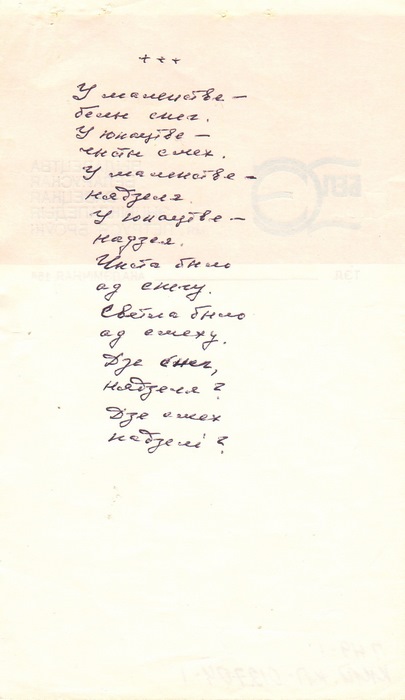 ***
У маленстве –
белы снег.
У юнацтве –
чысты смех.
У маленстве –
нядзеля.
У юнацтве –
надзея.
Чыста было
ад снегу.
Светла было
ад смеху.
Дзе снег,
нядзеля?
Дзе смех
надзеі?